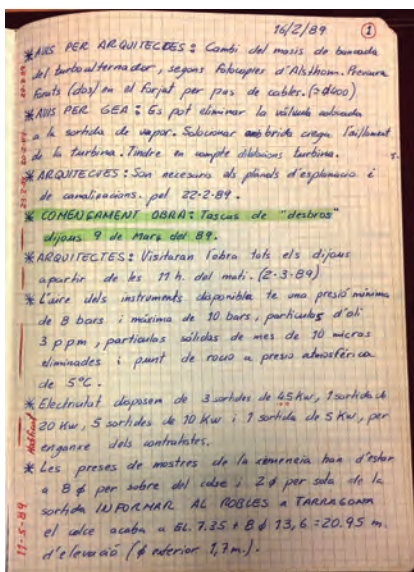 16/2/89 1
* AVIS PER ARQUITECTES: Cambi del masis de bancada
del turboalternador, segons fotocopies d'Alsthom. Preveure
forats (dos) en el forjat per pas de cables. (≥ø400)
* AVIS PER GEA: Es pot eliminar la vàlvula
a la sortida de vapor. Solucionar amb brida cega l'aïllament
de la turbina. Tindre en compte dilatacions turbina.
* ARQUITECTES: Son necesaris els planols d'esplanacio i
de canalizacions. pel 22-2-89.
* COMENÇAMENT OBRA: Tascas de "desbros"
dijous 9 de Març del 89.
* ARQUITECTES: Visitaran l'obra tots els dijous
apartir de les 11 h. del mati. (2-3-89)
* L'aire dels instruments disponible te una presió mínima
de 8 bars i máxima de 10 bars, particulas d'oli
3 ppm, particulas sólidas de mes de 10 micras
eliminades i punt de rocio a presio atmosférica
de 5°C.
* Electricitat disposem de 3 sortides de 45 Kw, 1 sortida de
20 Kw, 5 sortides de 10 Kw i 1 sortida de 5 Kw, per
enganxe dels contratates.
* Les preses de mostres de la xemeneia han d'estar
a 8 ø per sobre del colze i 2 ø per sota de la
sortida INFORMAR AL ROBLES a TARRAGONA
el colce acaba a EL. 7.35 + 8 ø 13,6 = 20.95 m.
d'elevació (ø exterior 1,7 m.).
11-5-89